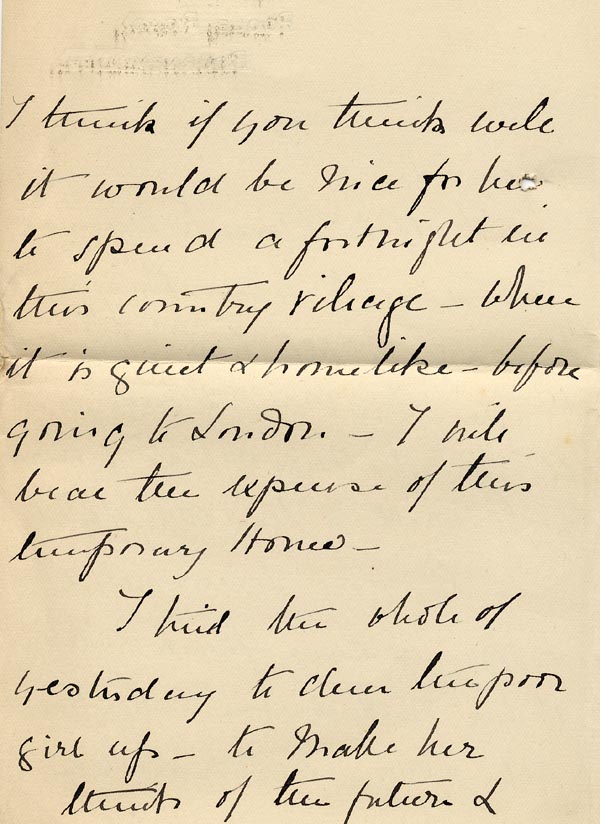 I think if you think well
it would be nice for her
to spend a fortnight in
this country village – where
it is quiet & homelike – before
going to London – I will
bear the expense of this
temporary Home –
I tried the whole of
yesterday to cheer the poor
girl up – to make her
think of the future &